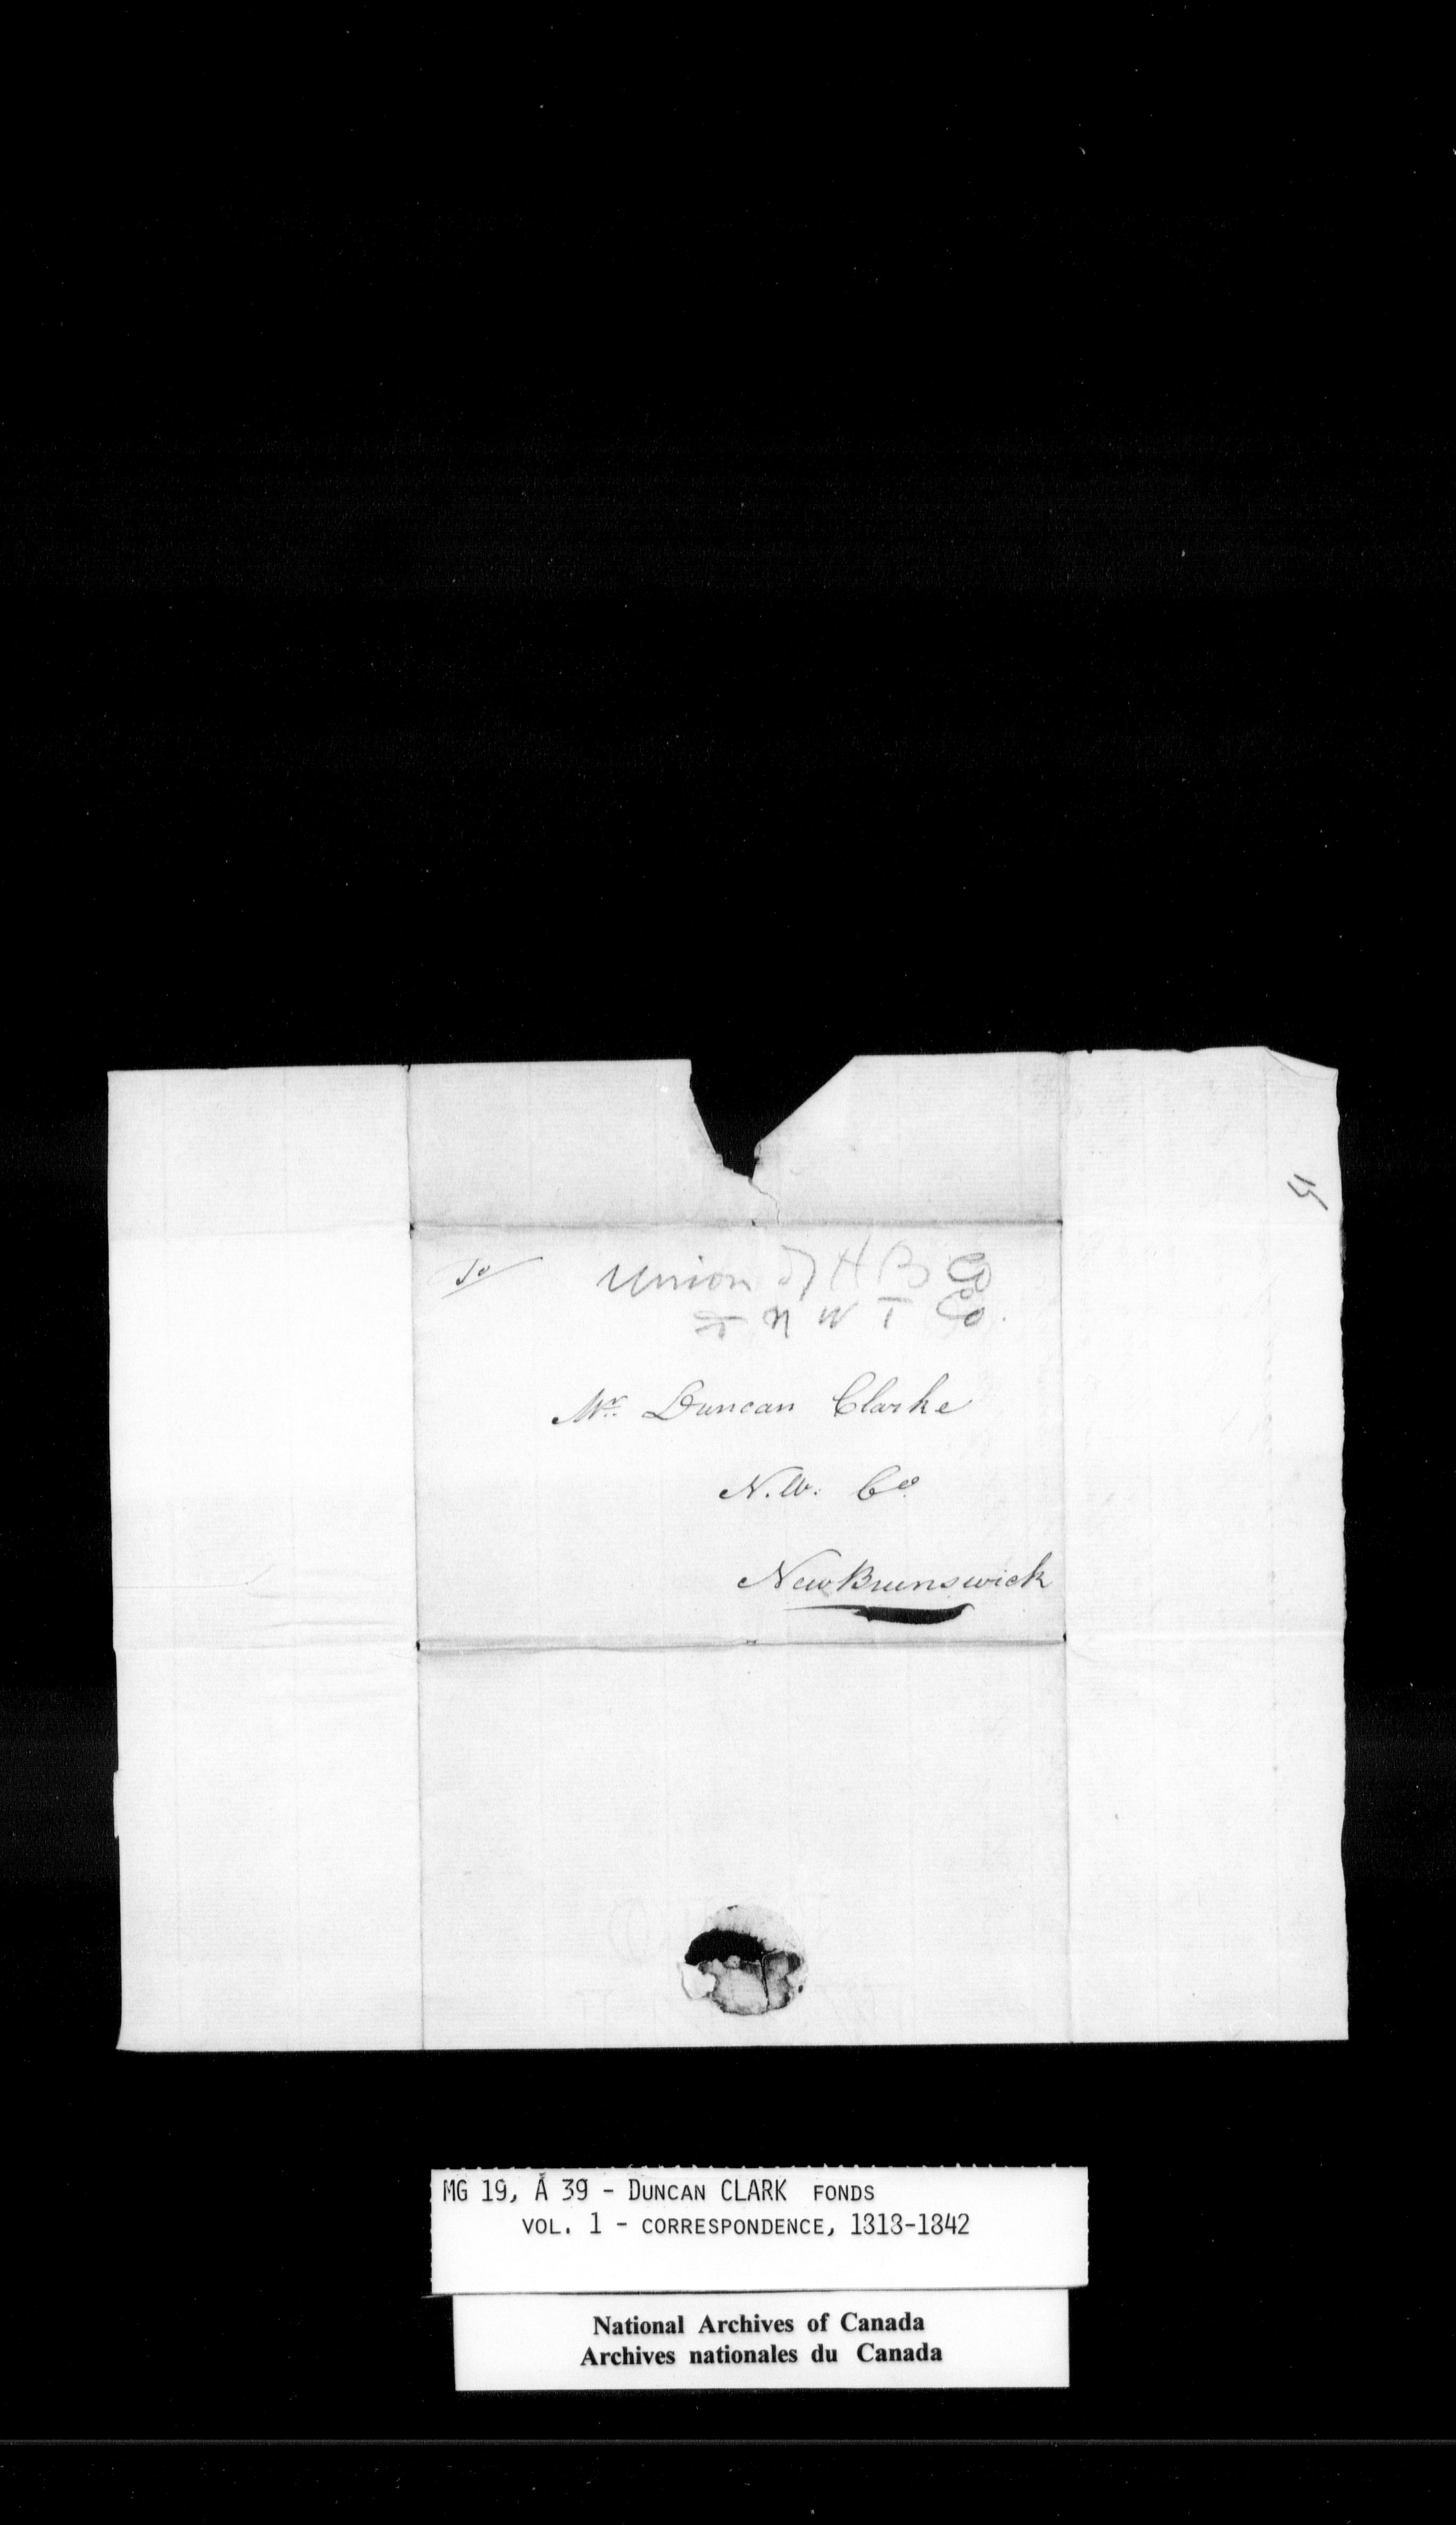 To
Union of H B Co
& N W T Co.
Mr. Duncan Clarke
N.W. Co.
New Brunswick
MG 19, A 39 - DUNCAN CLARK FONDS
VOL. 1 - CORRESPONDENCE, 1818-1842
National Archives of Canada
Archives nationales du Canada